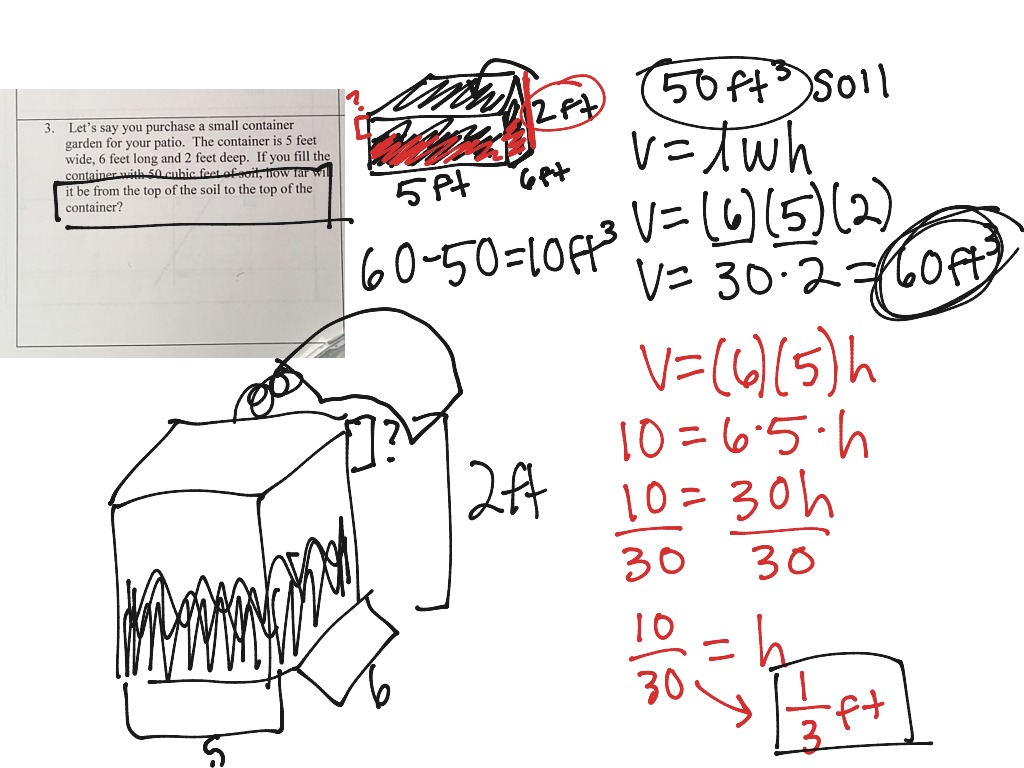 3. Let's say you purchase a small container
garden for your patio. The container is 5 feet
wide, 6 feet long and 2 feet deep. If you fill the
container with 50 cubic feet of soil, how far will
it be from the top of the soil to the top of the
container?
?
2ft
5ft
6ft
60-50=10ft³
50ft³ soil
V=lwh
V=(6)(5)(2)
V= 30·2=60ft³
V=(6)(5)h
10=6·5·h
10/30 = 30h/30
10/30 = h
1/3 ft
?
2ft
6
5